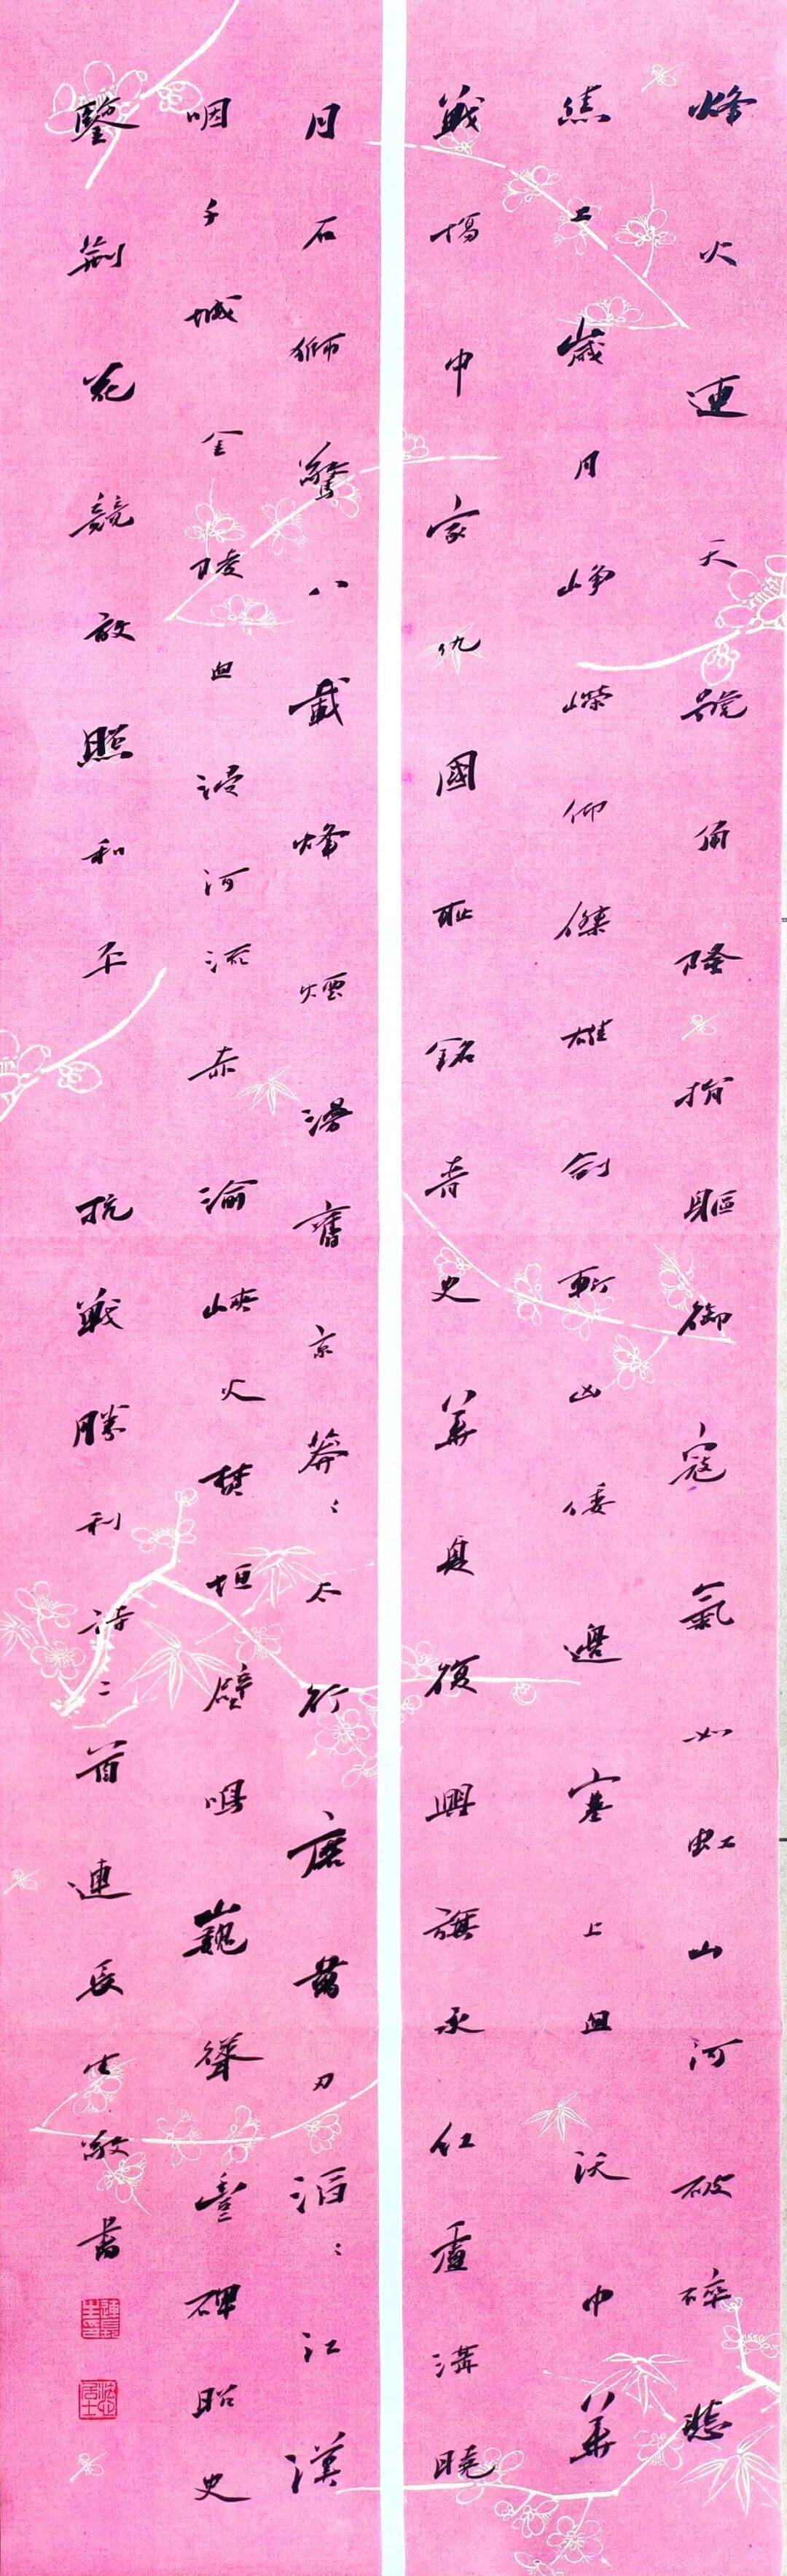 烽火連天號角隆捐軀御寇氣如虹山河破碎悲
焦土歲月崢嶸仰傑雄劍斬凶倭邊塞上血沃中華
戰場中家仇國恥銘青史華夏復興旗永紅盧溝曉
月石獅驚八載烽煙湯舊京莽〻太行磨萬刃滔〻江漢
咽千城金陵血浸河流赤渝峽火焚垣壁鳴巍聳豐碑昭史
鑒荆花競放照和平 抗戰勝利詩二首連長生敬書